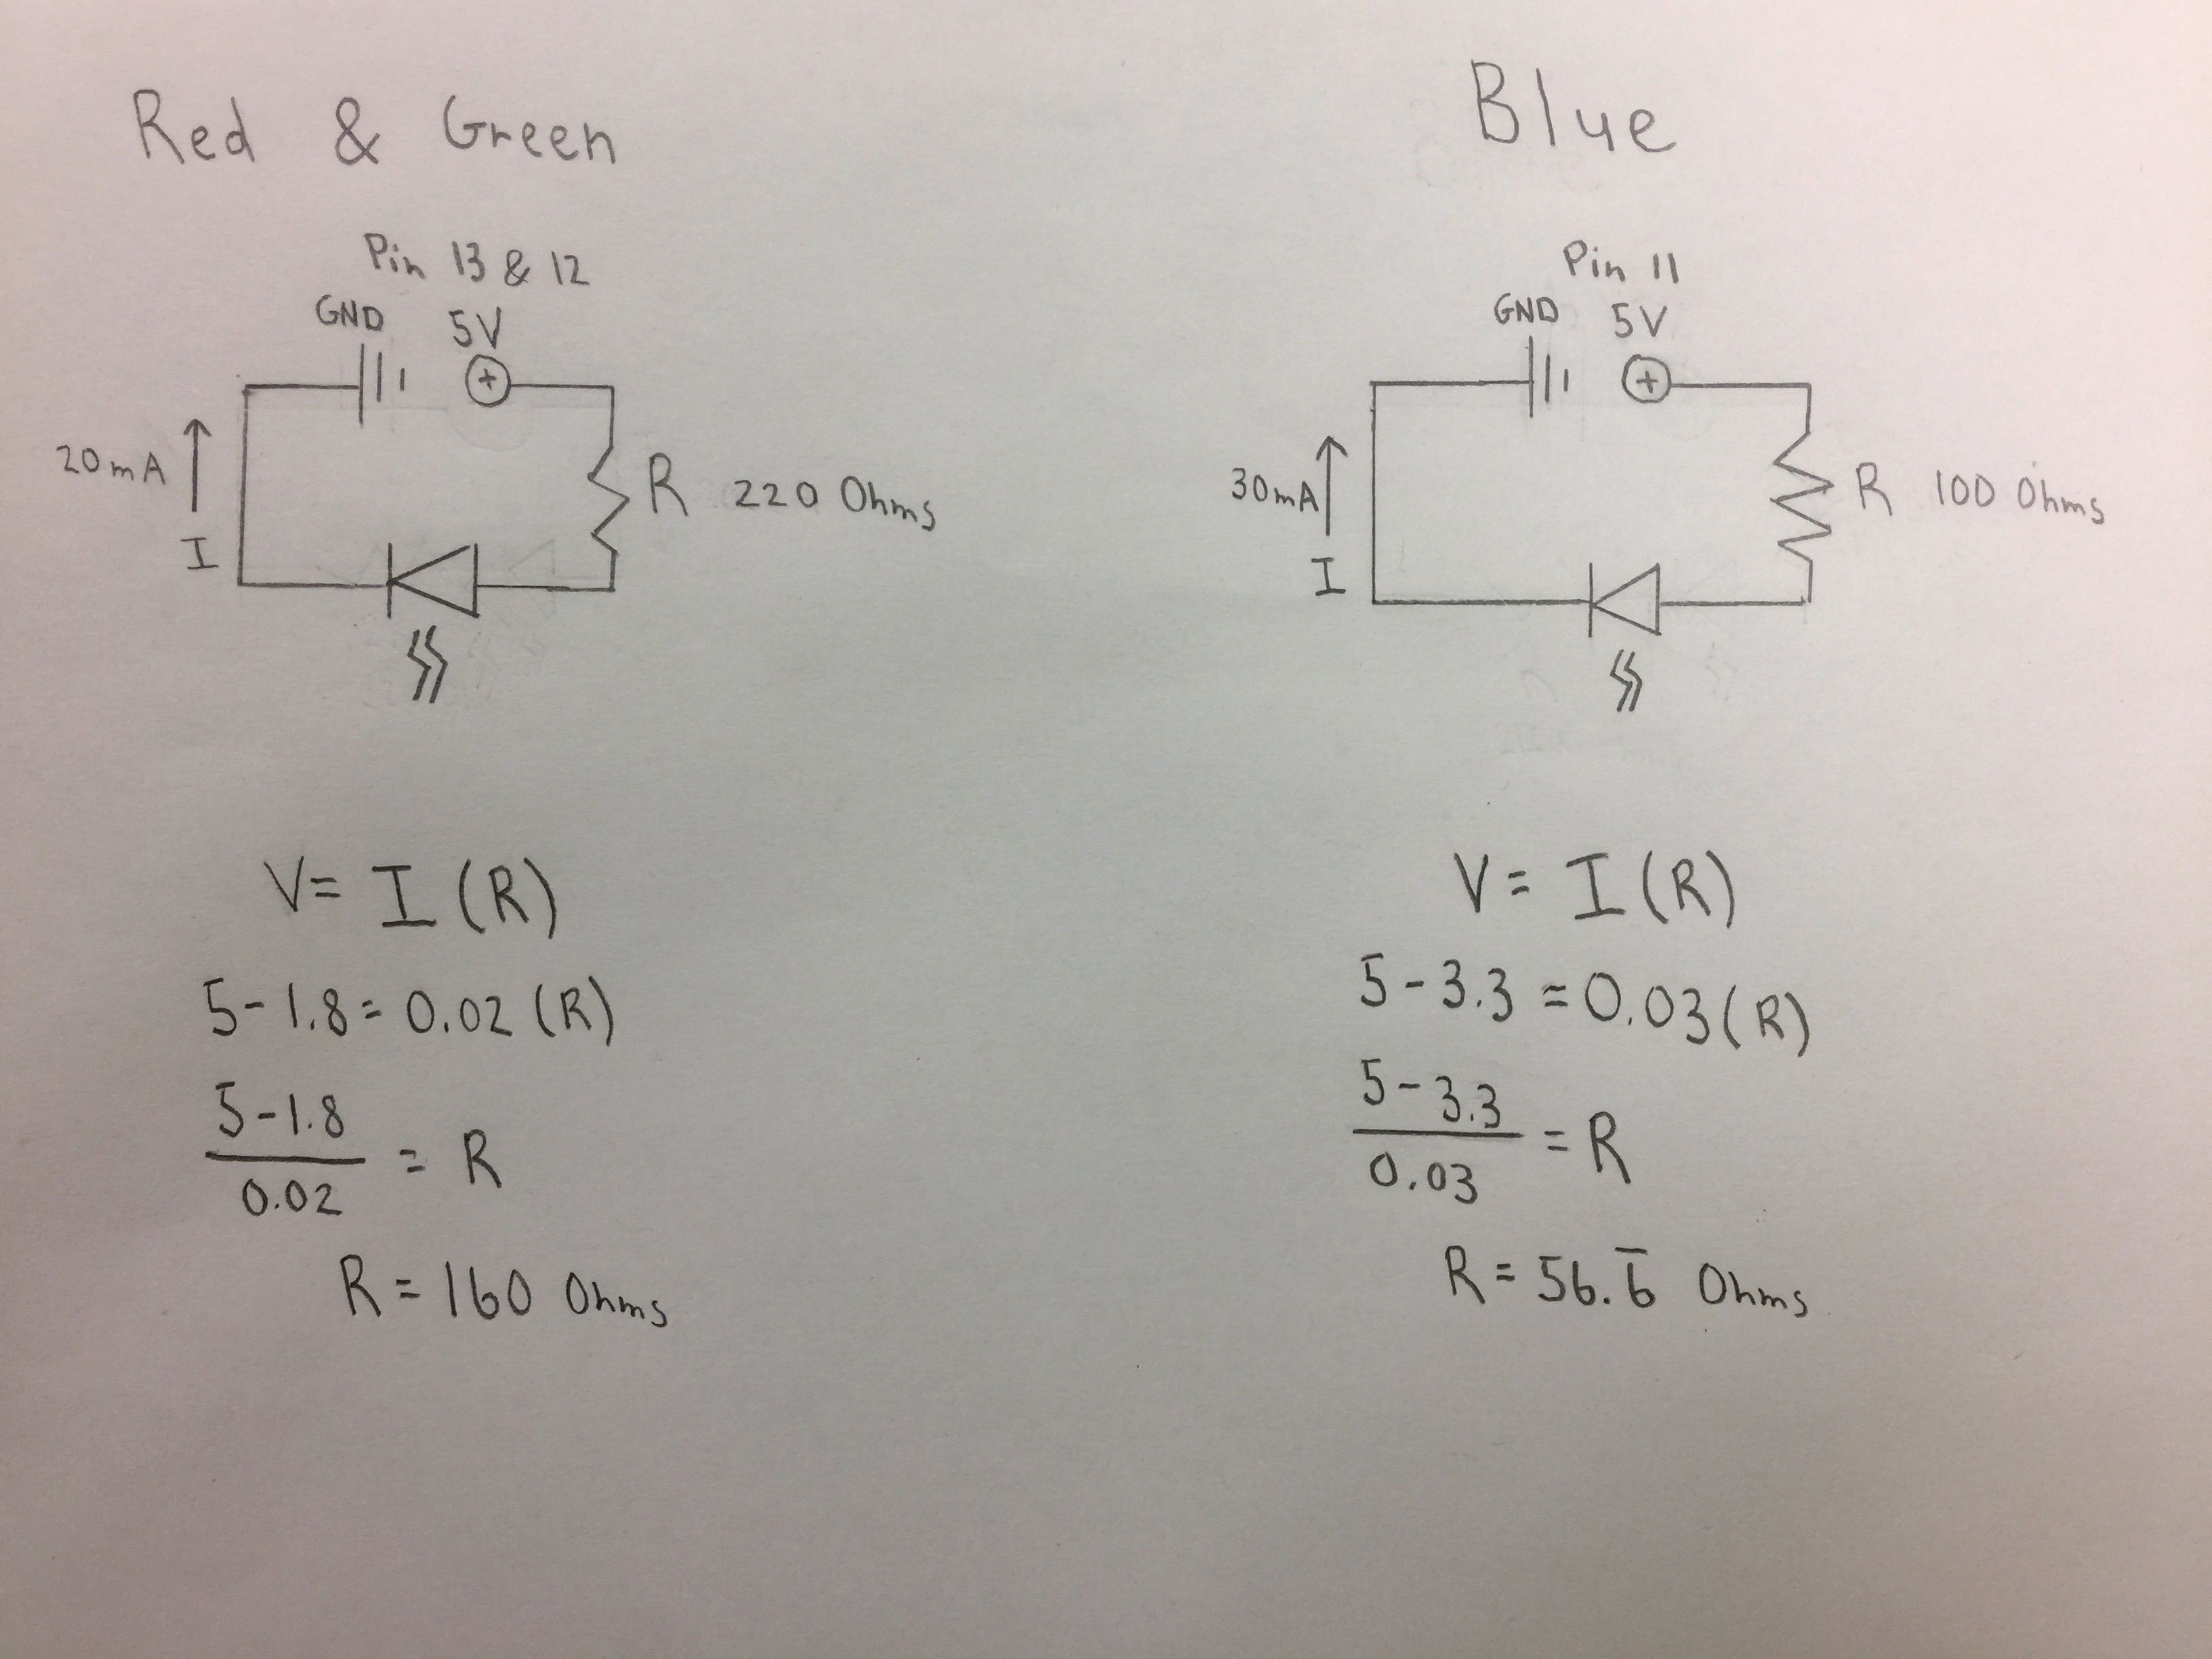 Red & Green
Pin 13 & 12
GND 5V
+
20mA
I
R 220 Ohms
V= I (R)
5-1.8= 0.02 (R)
5-1.8
0.02
= R
R = 160 Ohms
Blue
Pin 11
GND 5V
+
30mA
I
R 100 Ohms
V= I (R)
5-3.3 = 0.03 (R)
5-3.3
0.03
= R
R = 56.6̅ Ohms